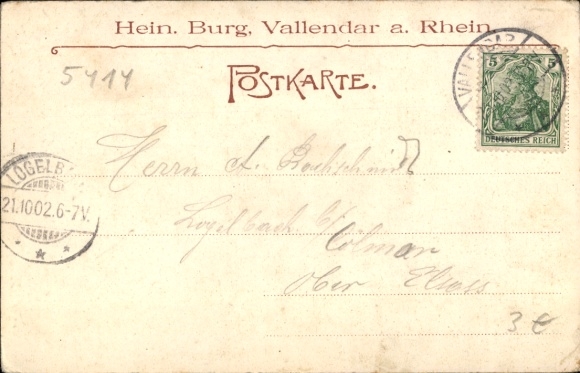 Hein. Burg, Vallendar a. Rhein.
5414
POSTKARTE.
VALLENDAR
5 5
DEUTSCHES REICH
Herrn A.
LOGELB
21.10.02.6-7V.
Logelbach b/
Colmar
Ober Elsass
3 €